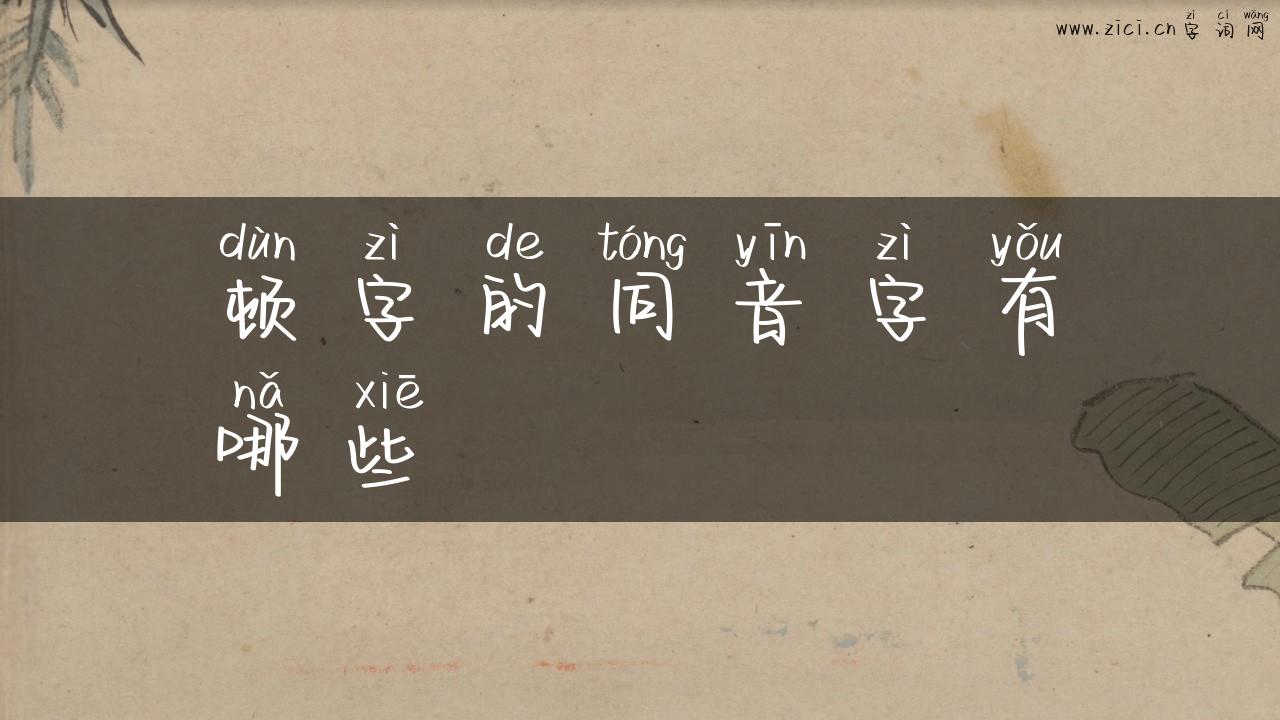 zì cí wǎng
www.zici.cn 字 词 网
dùn zì de tóng yīn zì yǒu
顿 字 的 同 音 字 有
nǎ xiē
哪 些